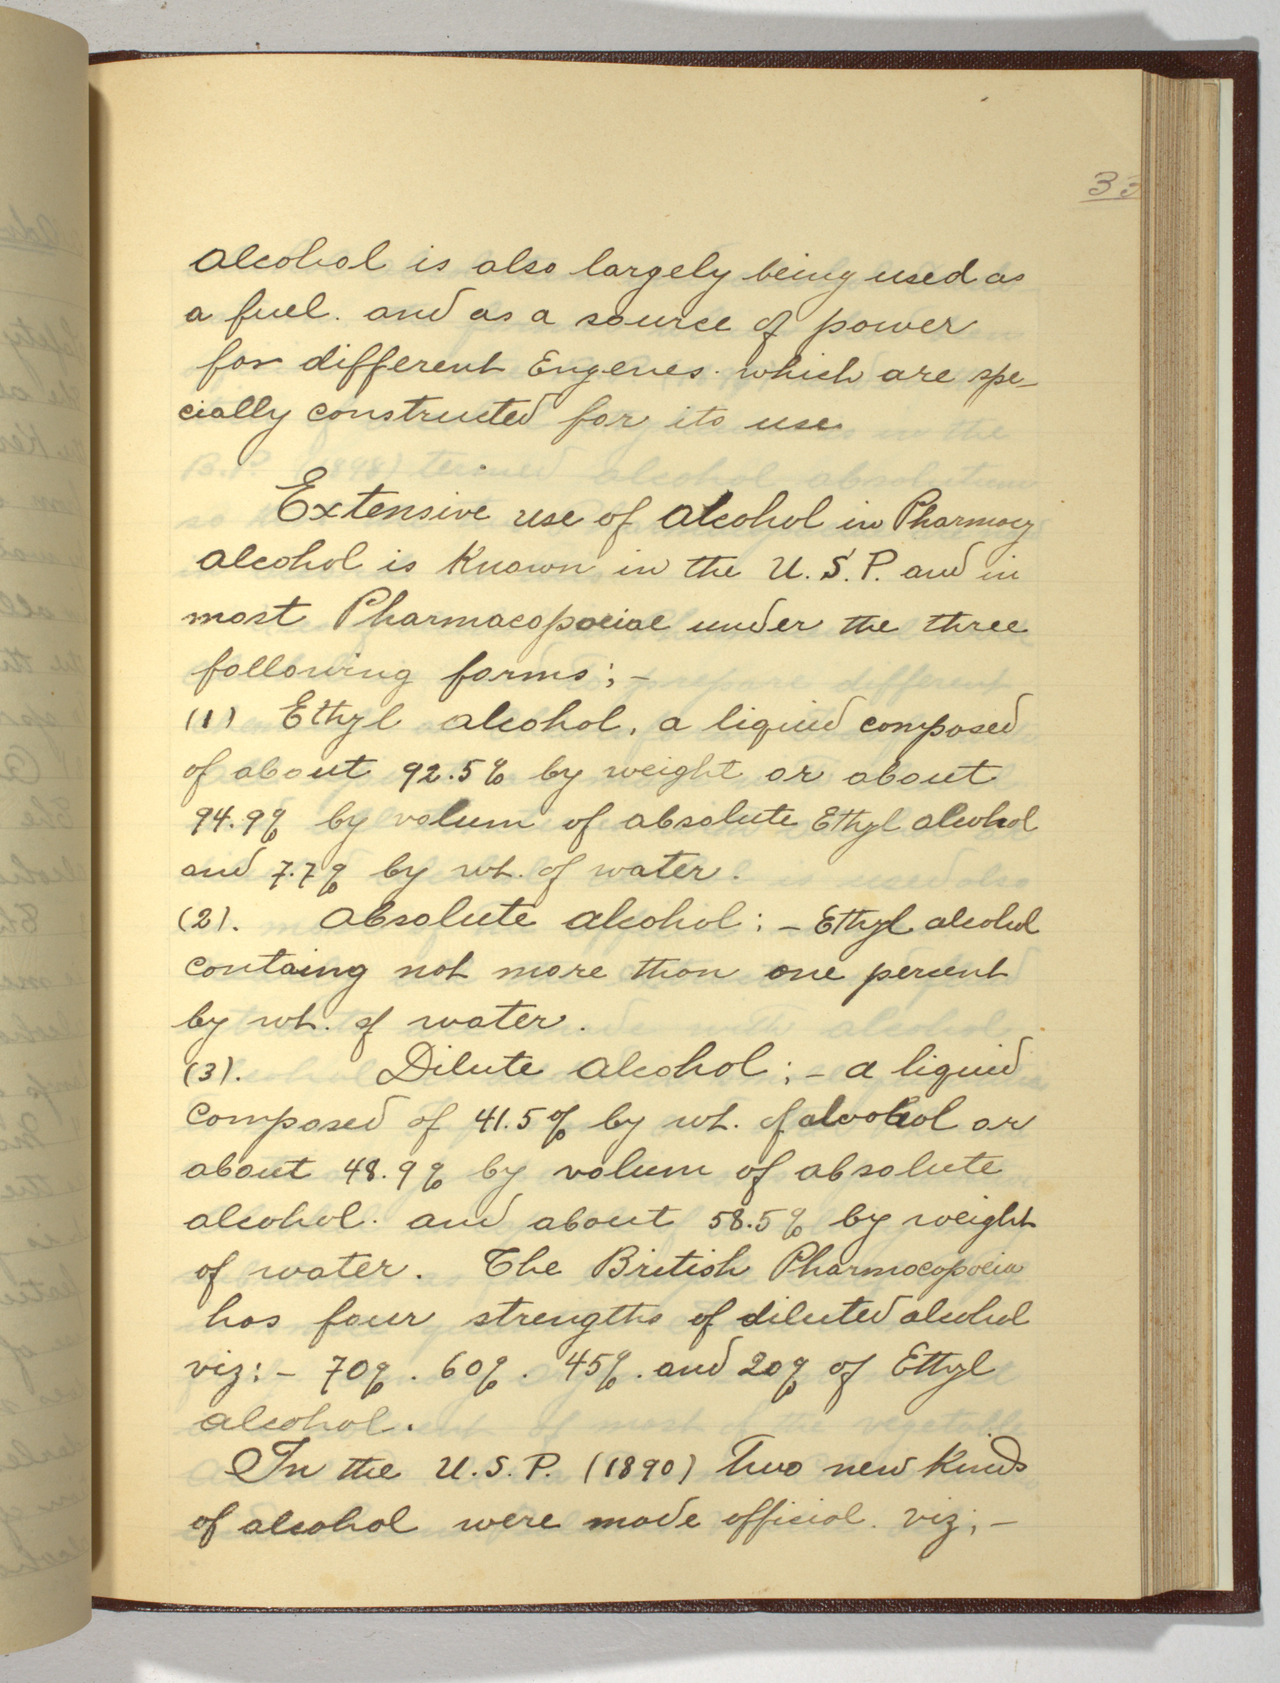 33
alcohol is also largely being used as
a fuel. and as a source of power
for different Engenes. which are spe-
cially constructed for its use
Extensive use of alcohol in Pharmacy
alcohol is Known in the U.S.P. and in
most Pharmacopoeiae under the three
following forms; -
(1) Ethyl alcohol, a liquid composed
of about 92.5% by weight or about
94.9% by volum of absolute Ethyl alcohol
and 7.7% by wt. of water.
(2). absolute alcohol: - Ethyl alcohol
containg not more than one percent
by wt. of water.
(3). Dilute alcohol; - a liquid
composed of 41.5% by wt. of alcohol or
about 48.9% by volum of absolute
alcohol. and about 58.5% by weight
of water. The British Pharmocopoeia
has four strengths of diluted alcohol
viz: - 70%. 60%. 45%. and 20% of Ethyl
alcohol.
In the U.S.P. (1890) Two new Kinds
of alcohol were made official. viz; -